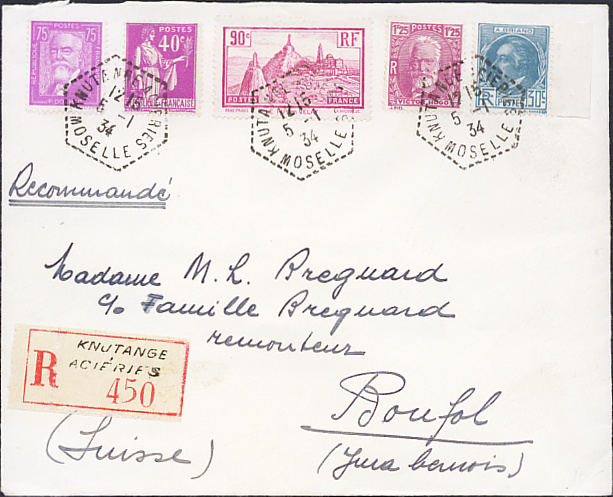 75 POSTES 75
RÉPUBLIQUE
40c
90c RF
POSTES FRANCE
1F25 POSTES 1F25
R F
VICTOR HUGO
A. BRIAND
30c
KNUTANGE-ACIERIES
12 15
5 -1
34
MOSELLE
KNUTANGE
12 15
5 -1
34
MOSELLE
KNUTANGE-ACIERIES
12 15
5 -1
34
MOSELLE
Recommandé
Madame M. L. Breguard
c/o Famille Breguard
remonteur
Bonfol
(Jura bernois)
(Suisse)
R KNUTANGE
ACIÉRIES
450